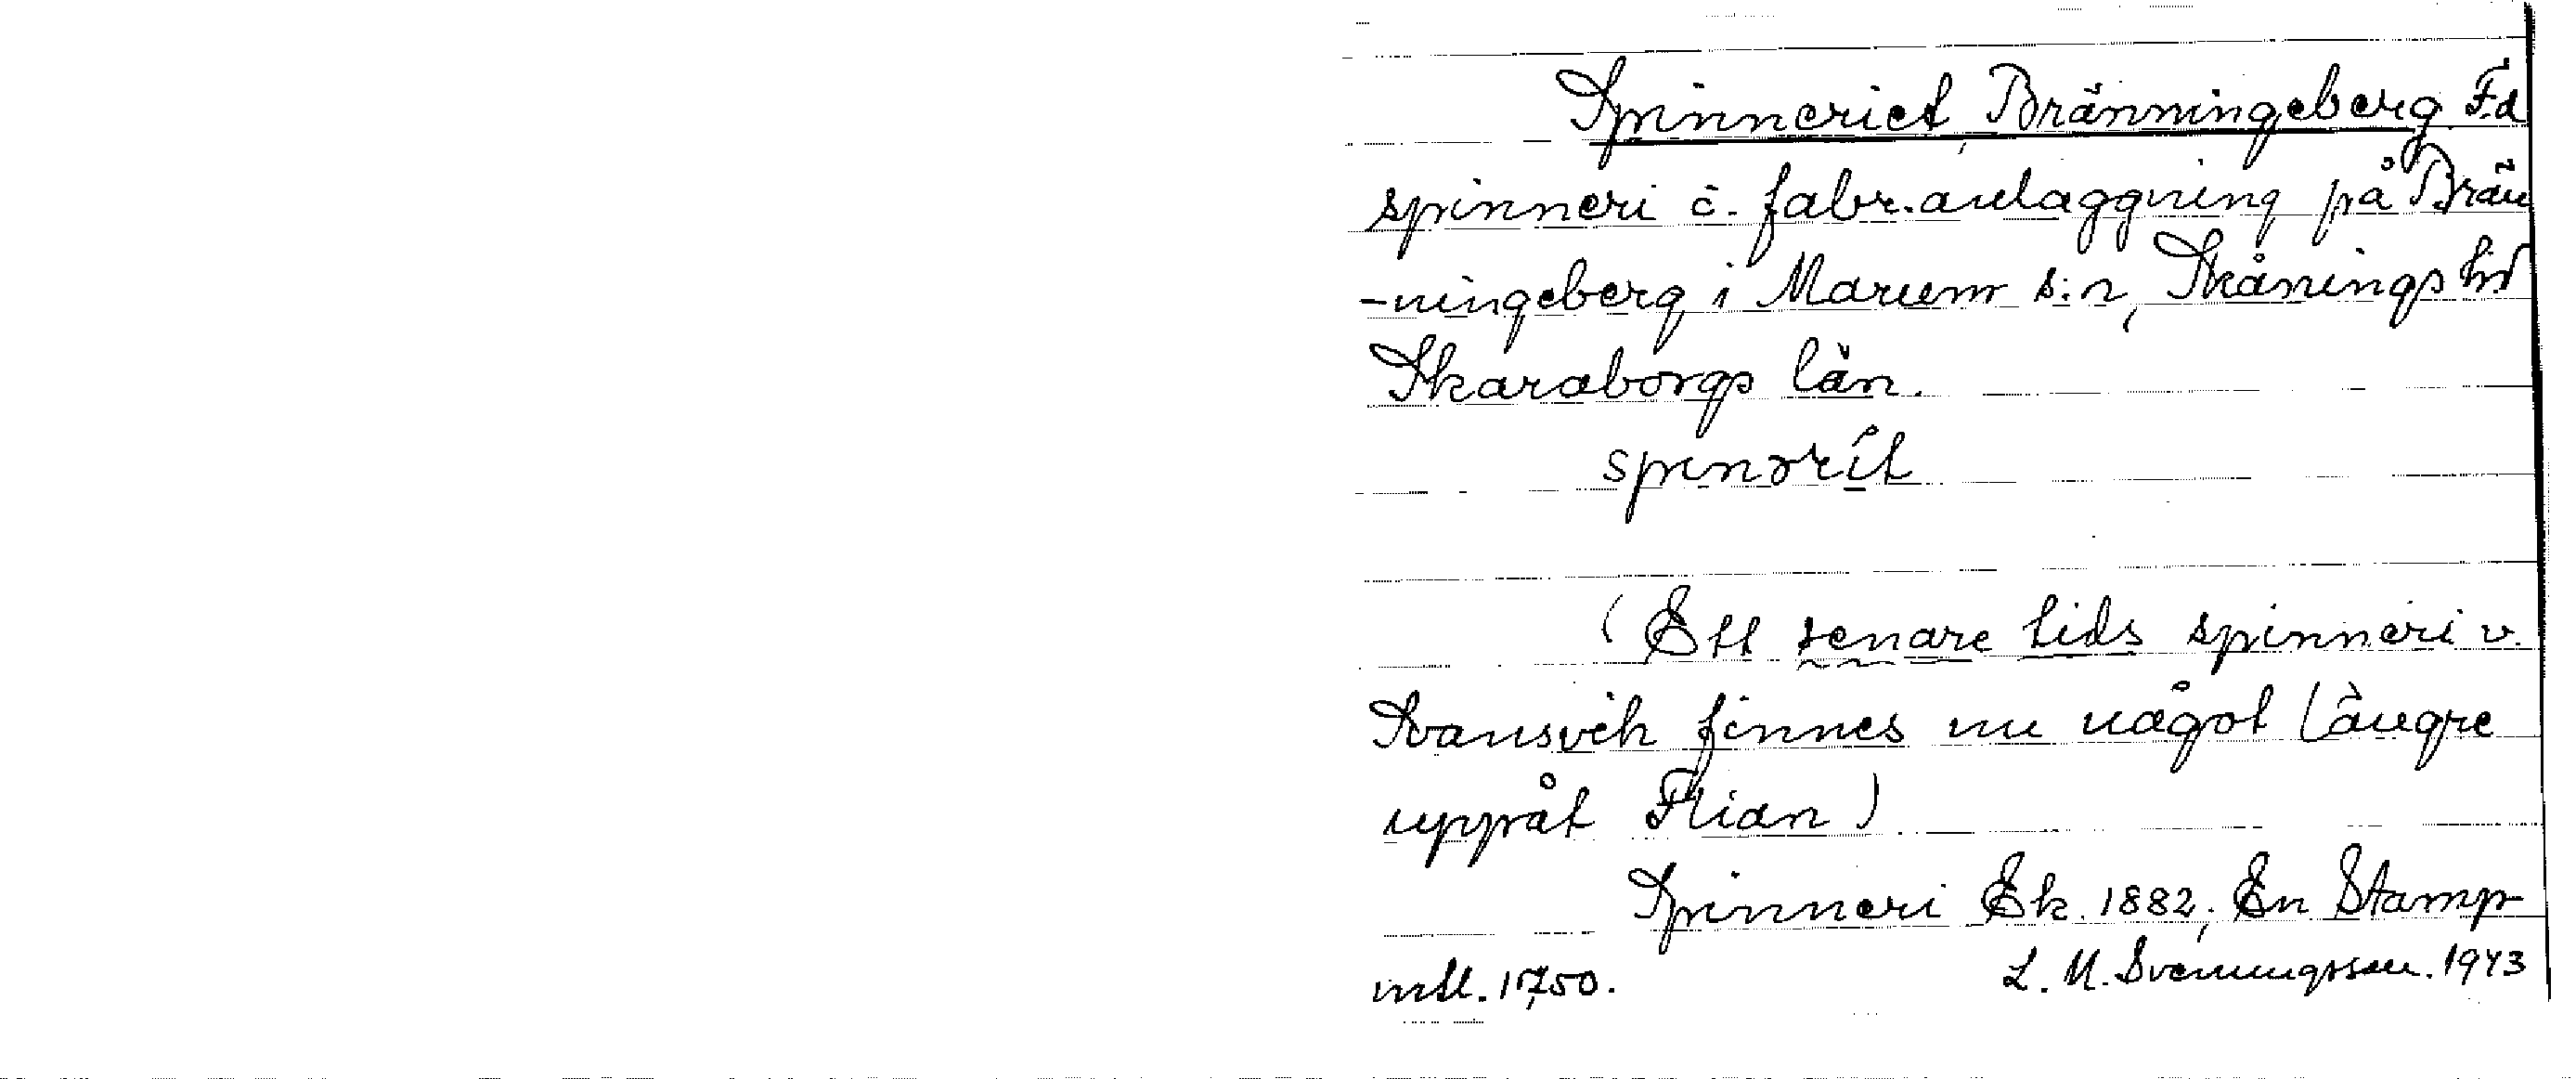 Spinneriet, Bränningeberg F.d
spinneri o. fabr.anläggning på Brän
-ningeberg i Marum s:n, Skånings hd
Skaraborgs län.
spinərít
(Ett senare tids spinneri v.
Svansvik finnes nu något längre
uppåt Flian)
Spinneri Ek. 1882, En Stamp
mtl. 1750.
L. M. Svenungsson. 1943